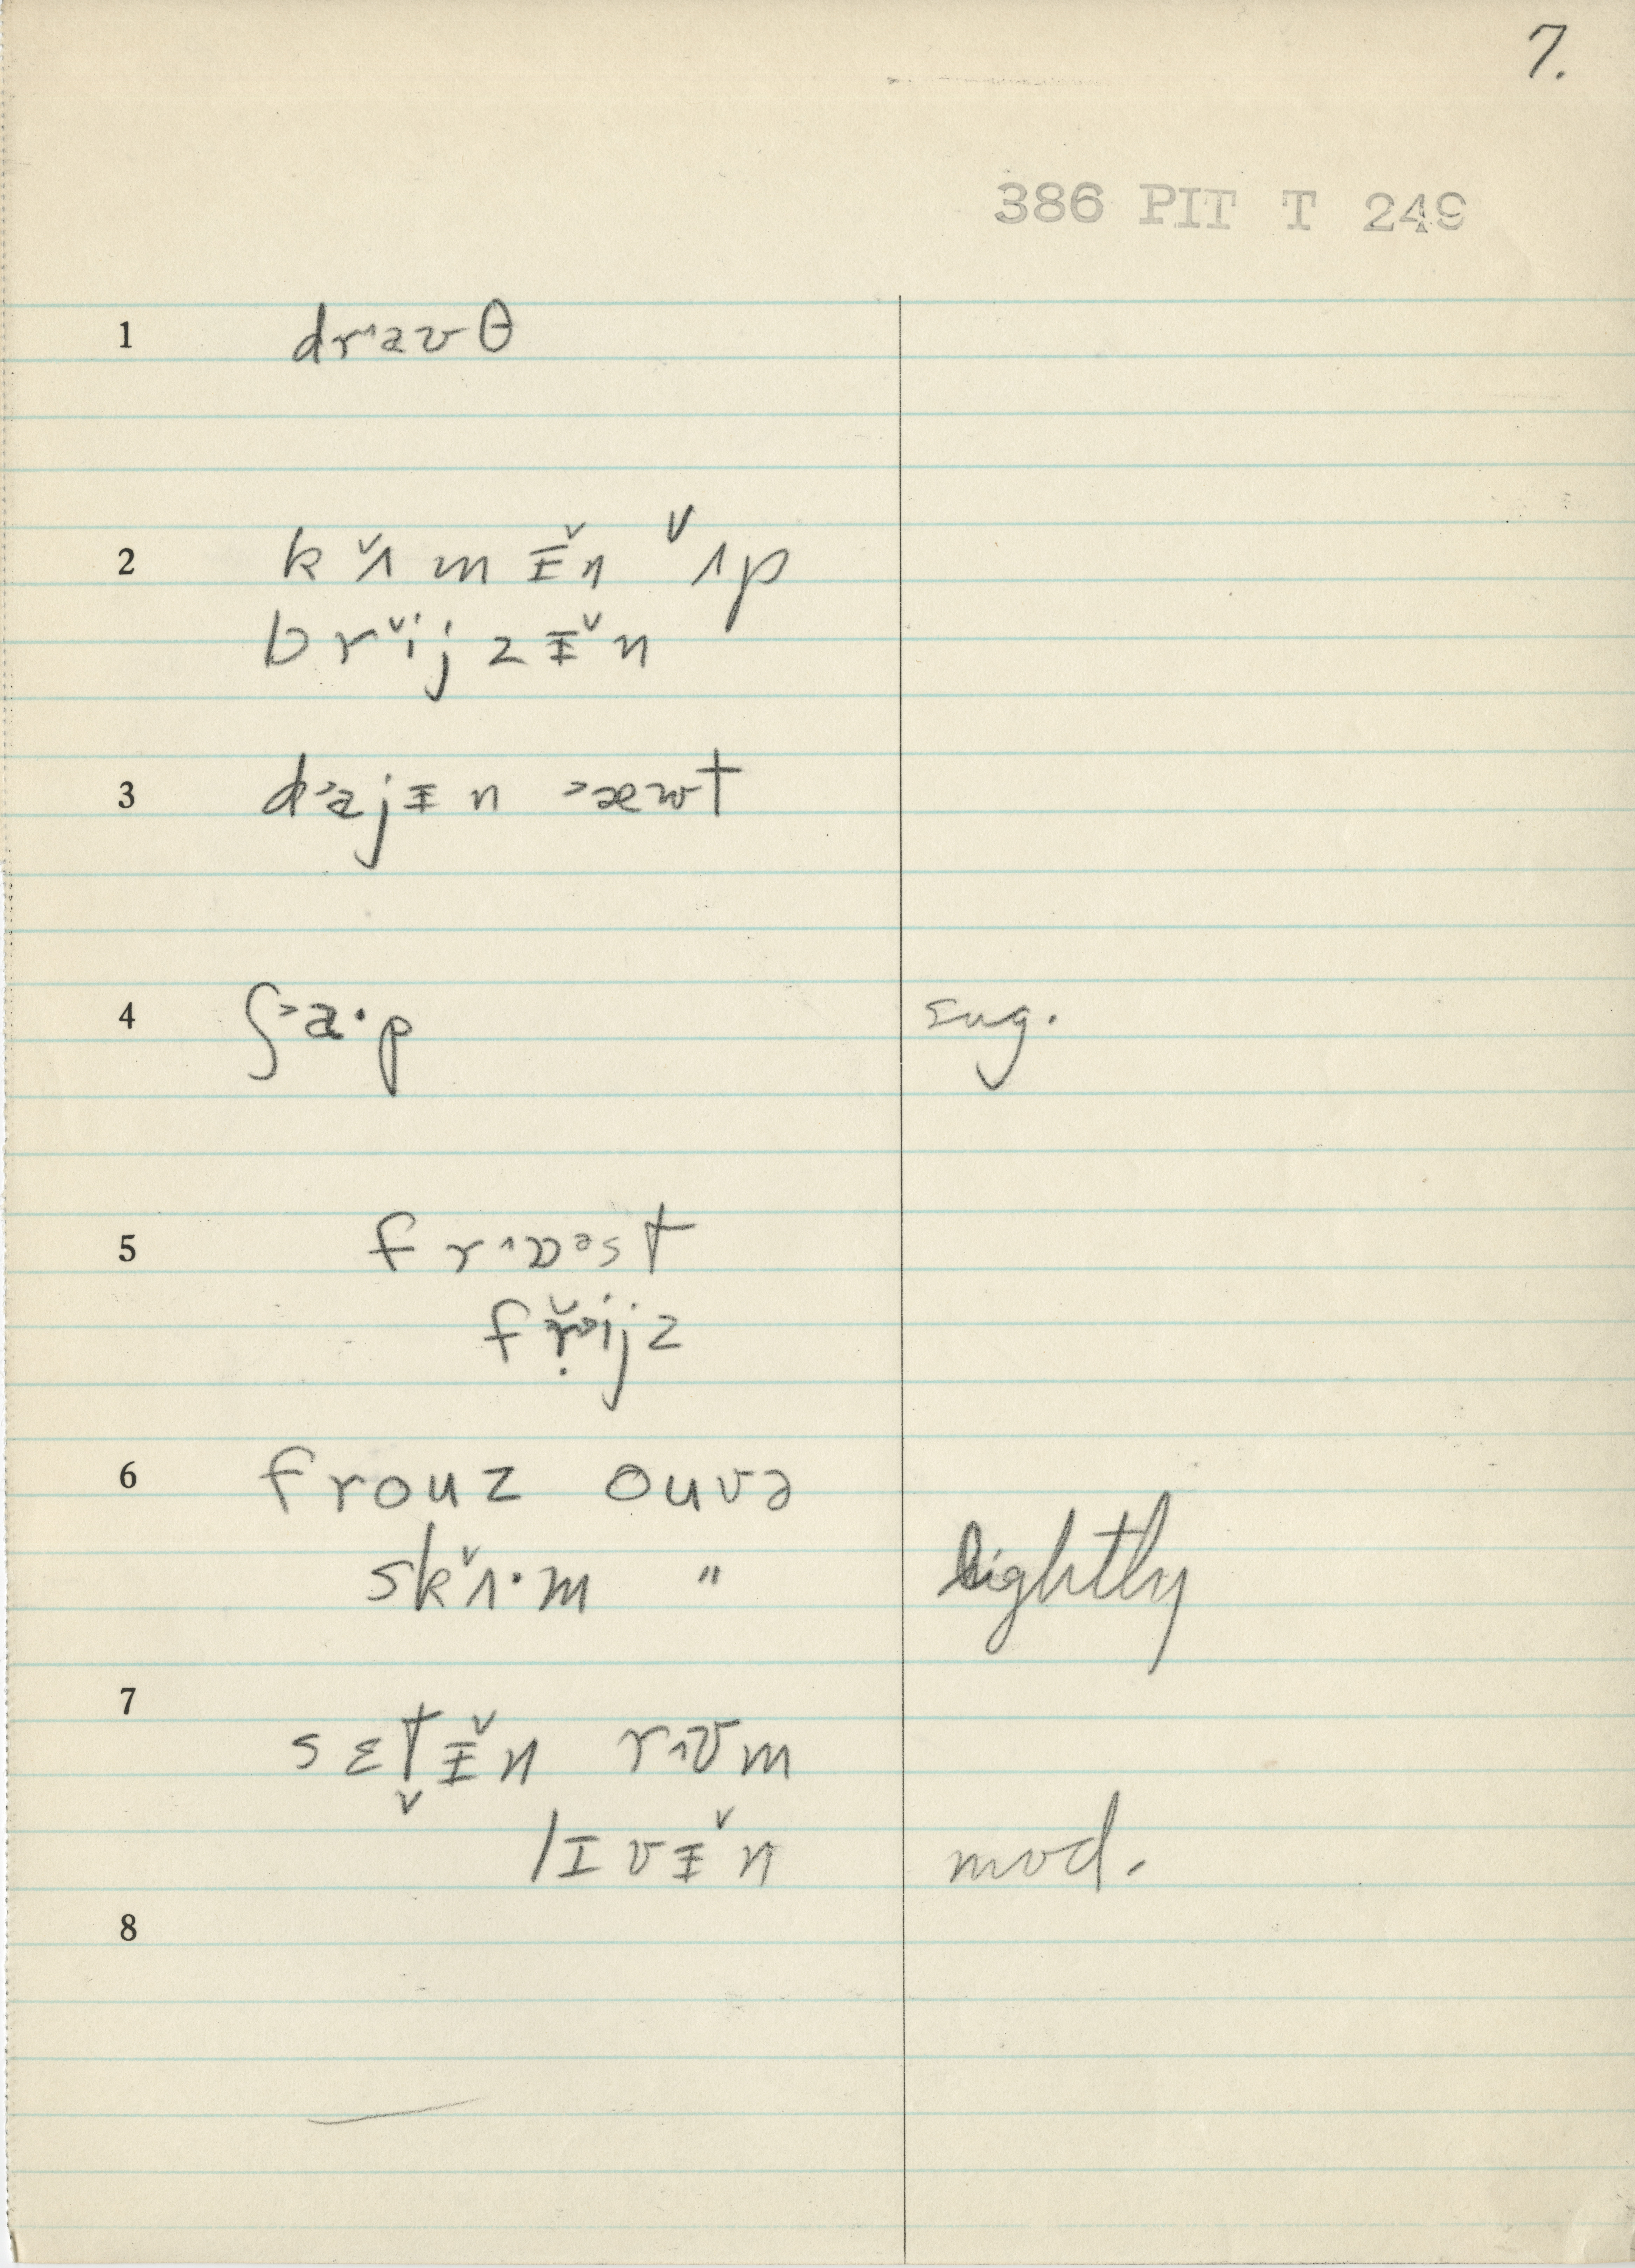 7.
386 PIT T 249
1 dr˄aʊθ
2 k ˇʌ m ᵻ̌n ˇʌp
brˇij z ᵻ̌n
3 d˃ajᵻn ˃æwt
4 ʃ˃a·p sug.
5 fr˄ɒəst
fṛ̌ijz
6 frouz ouvə
skˇʌ·m " lightly
7 sɛt̬ᵻ̌n r˄ʊm
lɪvᵻ̌n mod.
8